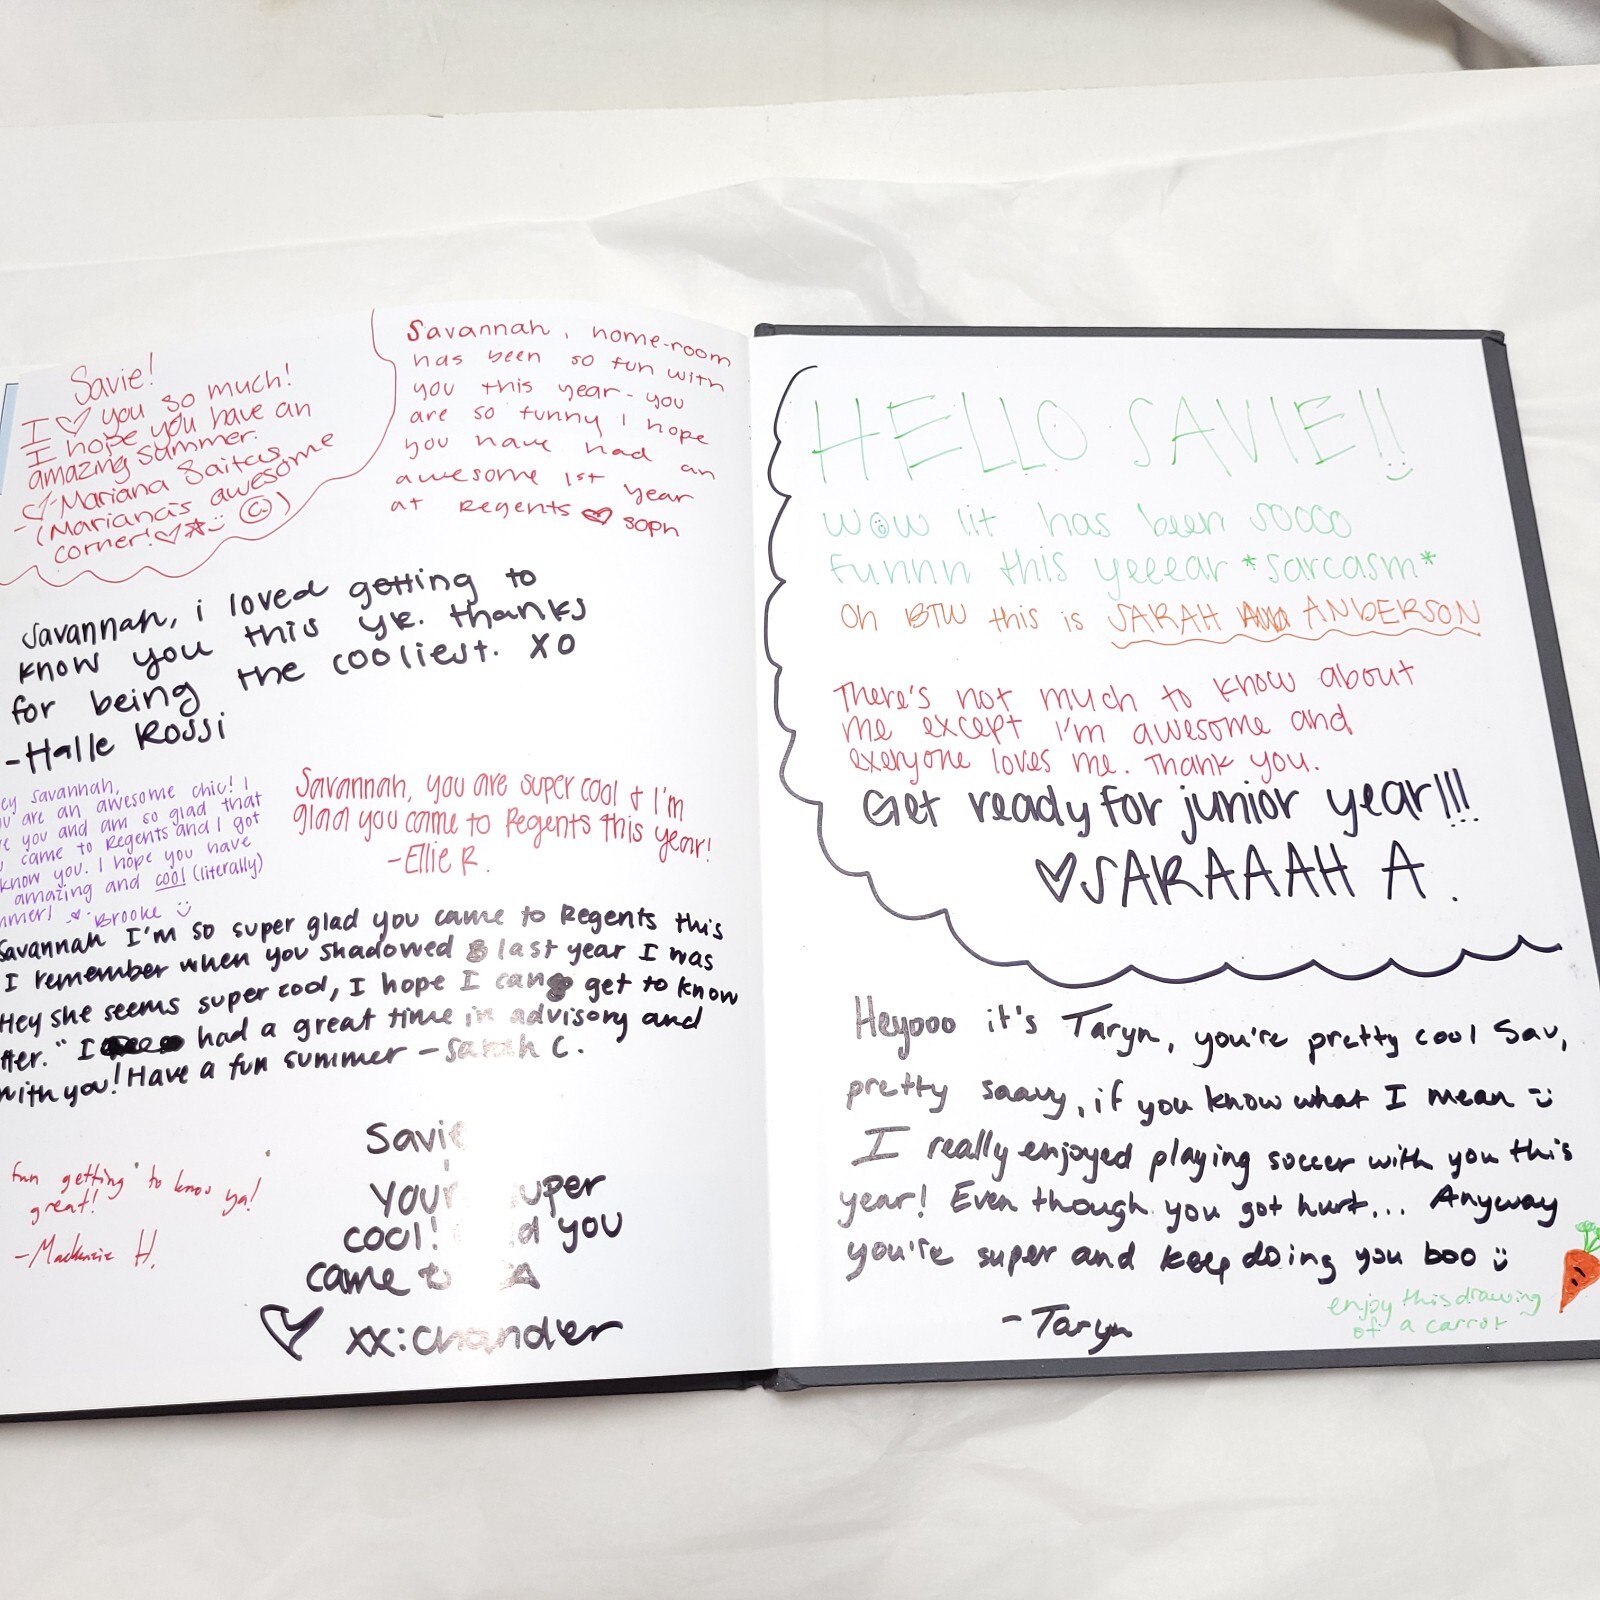 Savie!
I ♡ you so much!
I hope you have an
amazing summer.
♡-Mariana Saitas
-(Mariana's awesome
corner!♡☆☺ ☺)
Savannah, home-room
has been so fun with
you this year - you
are so funny I hope
you have had an
awesome 1st year
at Regents ♡ soph
Savannah, i loved getting to
know you this yr. thanks
for being the cooliest. XO
-Halle Rossi
ey Savannah,
are an awesome chic! I
you and am so glad that
came to Regents and I got
know you. I hope you have
amazing and cool (literally)
mmer! Brooke ☺
Savannah, you are super cool & I'm
glad you came to Regents this year!
-Ellie R.
Savannah I'm so super glad you came to Regents this
I remember when you shadowed last year I was
Hey she seems super cool, I hope I can get to know
tter." I had a great time in advisory and
with you! Have a fun summer - Sarah C.
fun getting to know ya!
great!
-Mackenzie H.
Savie
your super
cool! you
came to
♡ xx: chandler
HELLO SAVIE!!
wow lit has been soooo
funnn this yeeear *sarcasm*
Oh BTW this is SARAH ANDERSON
There's not much to know about
me except I'm awesome and
everyone loves me. Thank you.
Get ready for junior year!!!
♡SARAAAH A.
Heyooo it's Taryn, you're pretty cool Sav,
pretty saavy, if you know what I mean ☺
I really enjoyed playing soccer with you this
year! Even though you got hurt... Anyway
you're super and keep doing you boo ☺
-Taryn
enjoy this drawing
of a carrot